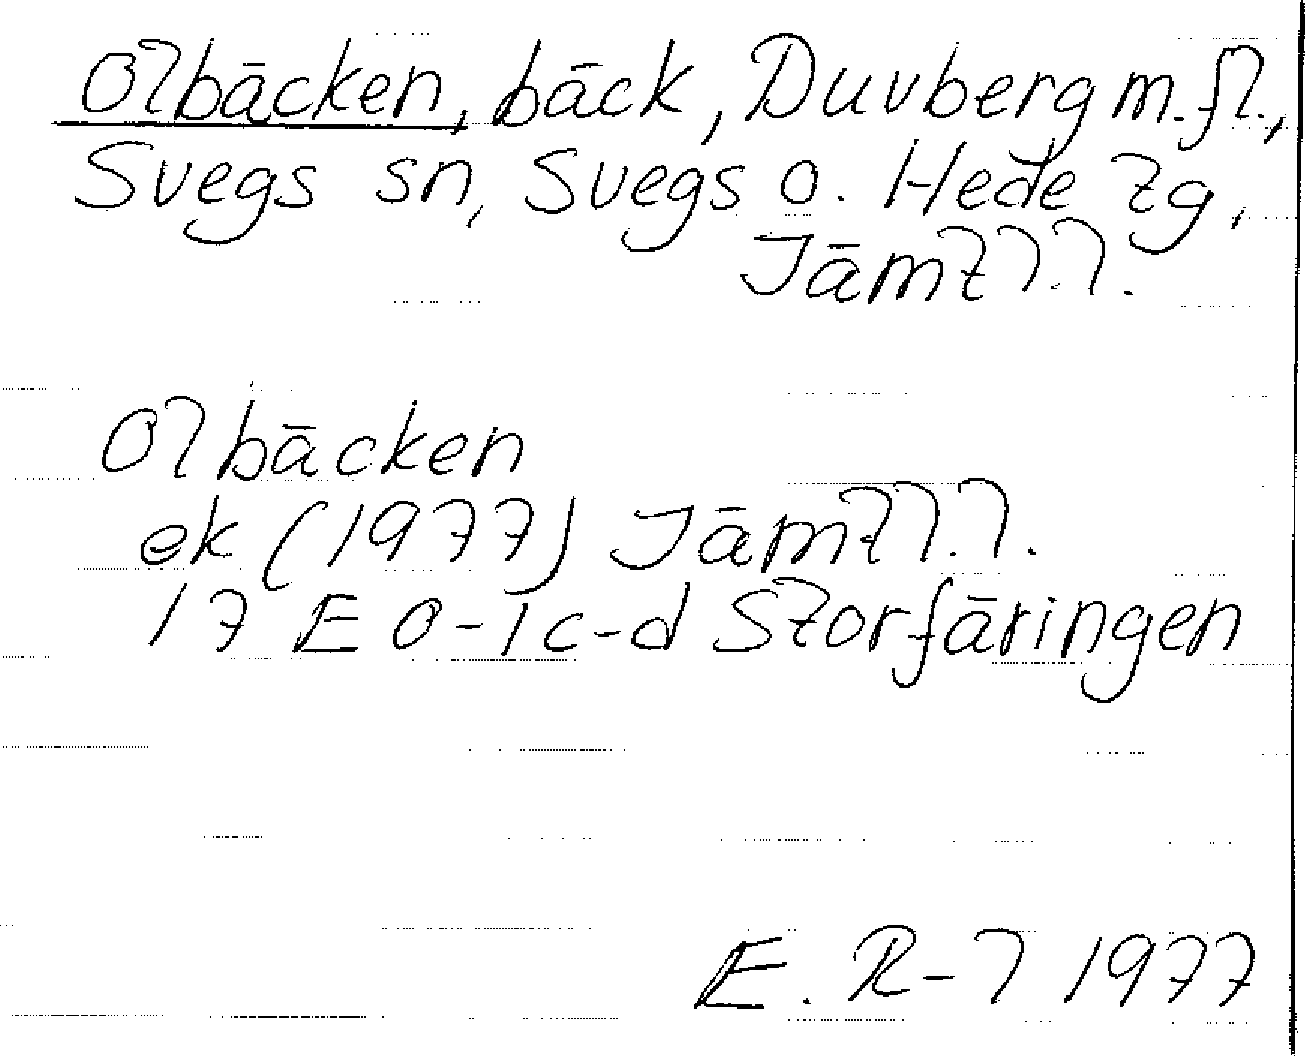 Olbäcken, bäck, Duvberg m.fl.,
Svegs sn, Svegs o. Hede tg,
Jämtl.l.
Olbäcken
ek (1977) Jämtl.l.
17 E 0-1 c-d Storfäringen
E. R-l 1977